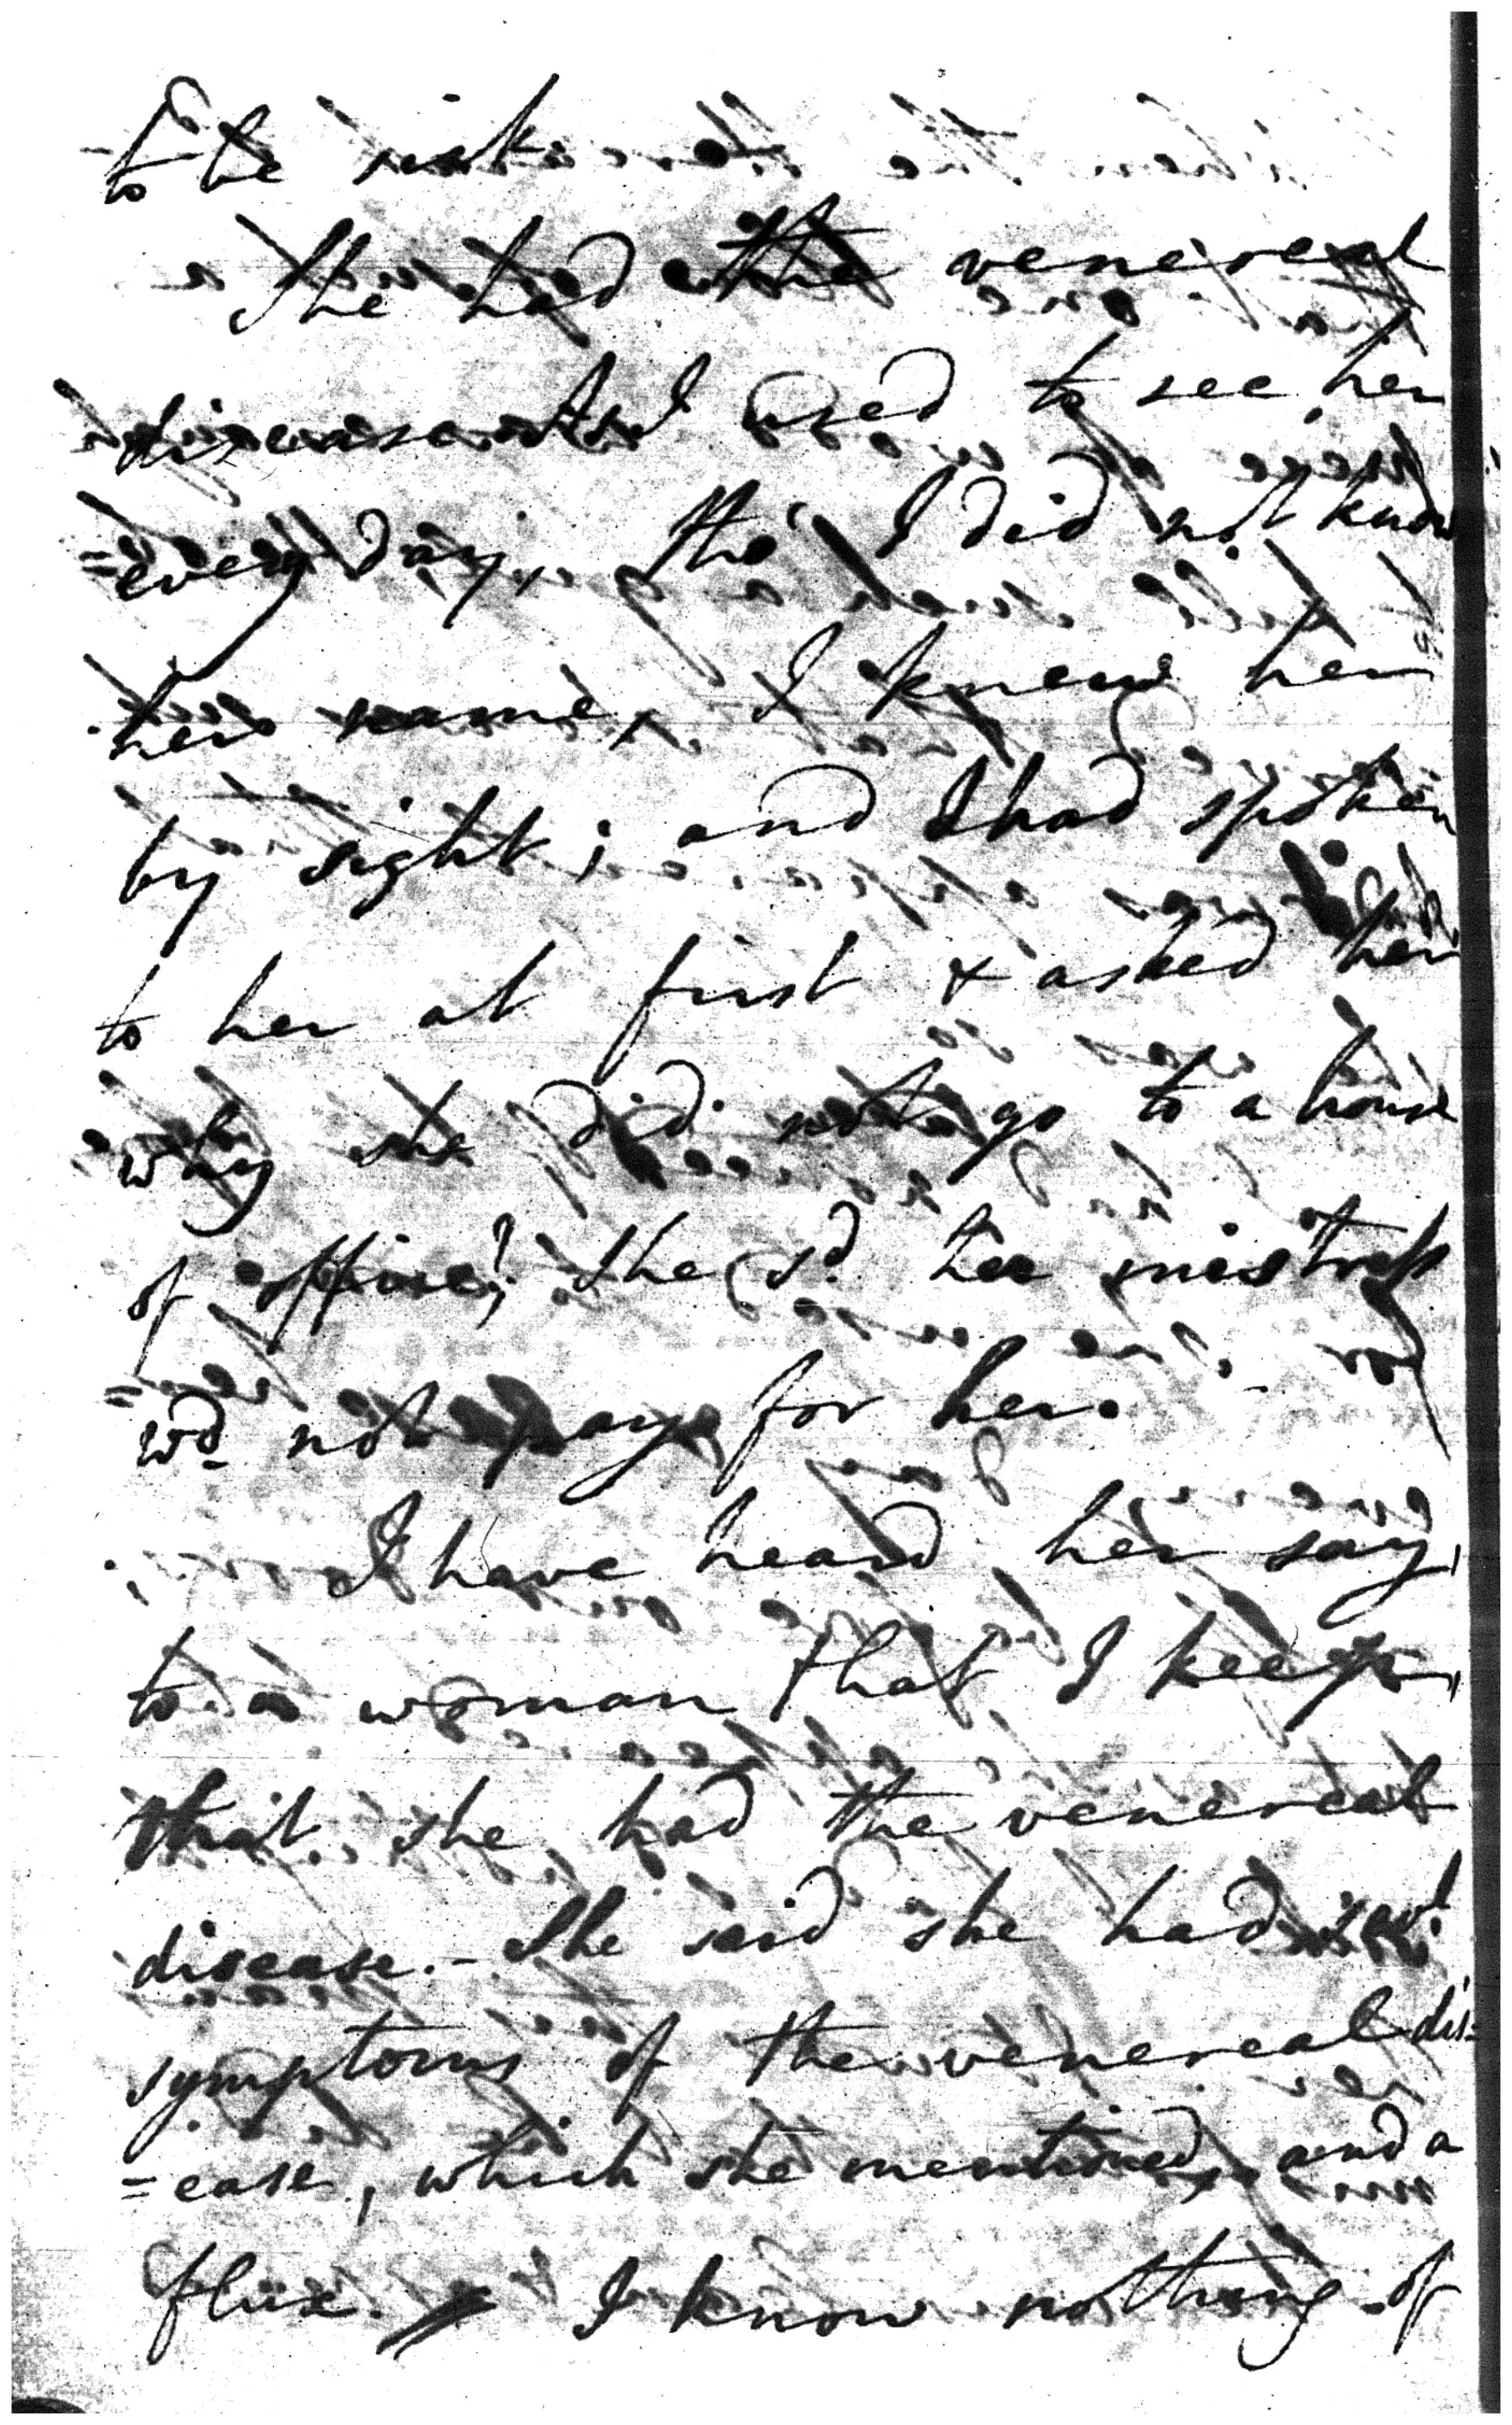 to be sick.
She had the venereal
disease. As I used to see her
=every day, tho' I did not know
her name, I knew her
by sight; and I had spoken
to her at first & asked her
why she did not go to a house
of office? She sd. her mistress
=wd. not pay for her.
I have heard her say,
to a woman that I keep,
that she had the venereal
disease. - She said she had
symptoms of the venereal dis=
=ease, which she mentioned, and a
flux. I know nothing of